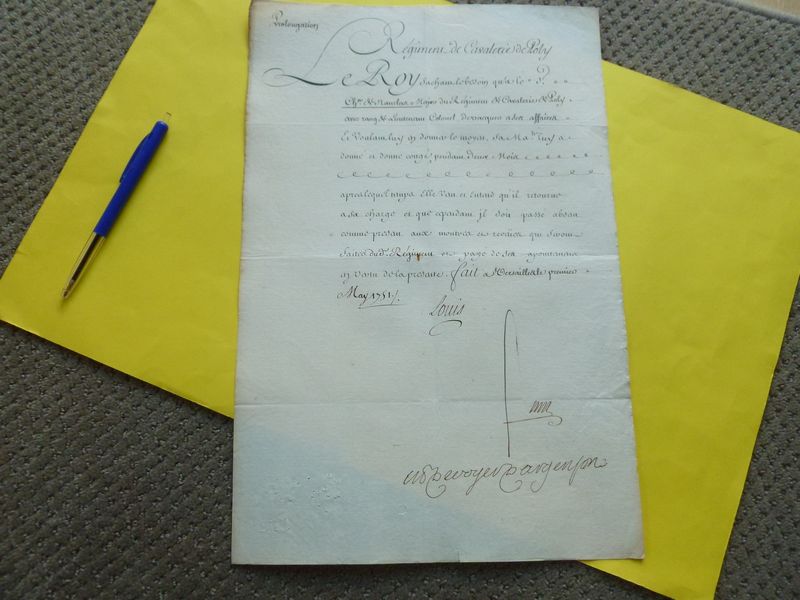 Prolongation
Régiment de Cavalerie de Poly
Le Roy Sachant le besoin qu'a le S.
Ch.er de Major du Régiment de Cavalerie de Poly
avec rang de Lieutenant Colonel de vacquer a ses affaires
Et Voulant luy en donner le moyen, Sa Ma.té luy a
donné et donne congé pendant deux Mois
apres lequel temps Elle Veut et Entend qu'il retourne
a sa charge et que cependant jl soit passé absent
comme present aux montres et reveües qui seront
faites dud. Régiment et payé de ses apointemens
en vertu de la presente. fait a Versailles le premier
May 1751.
Louis
M P De voyer D'argenson